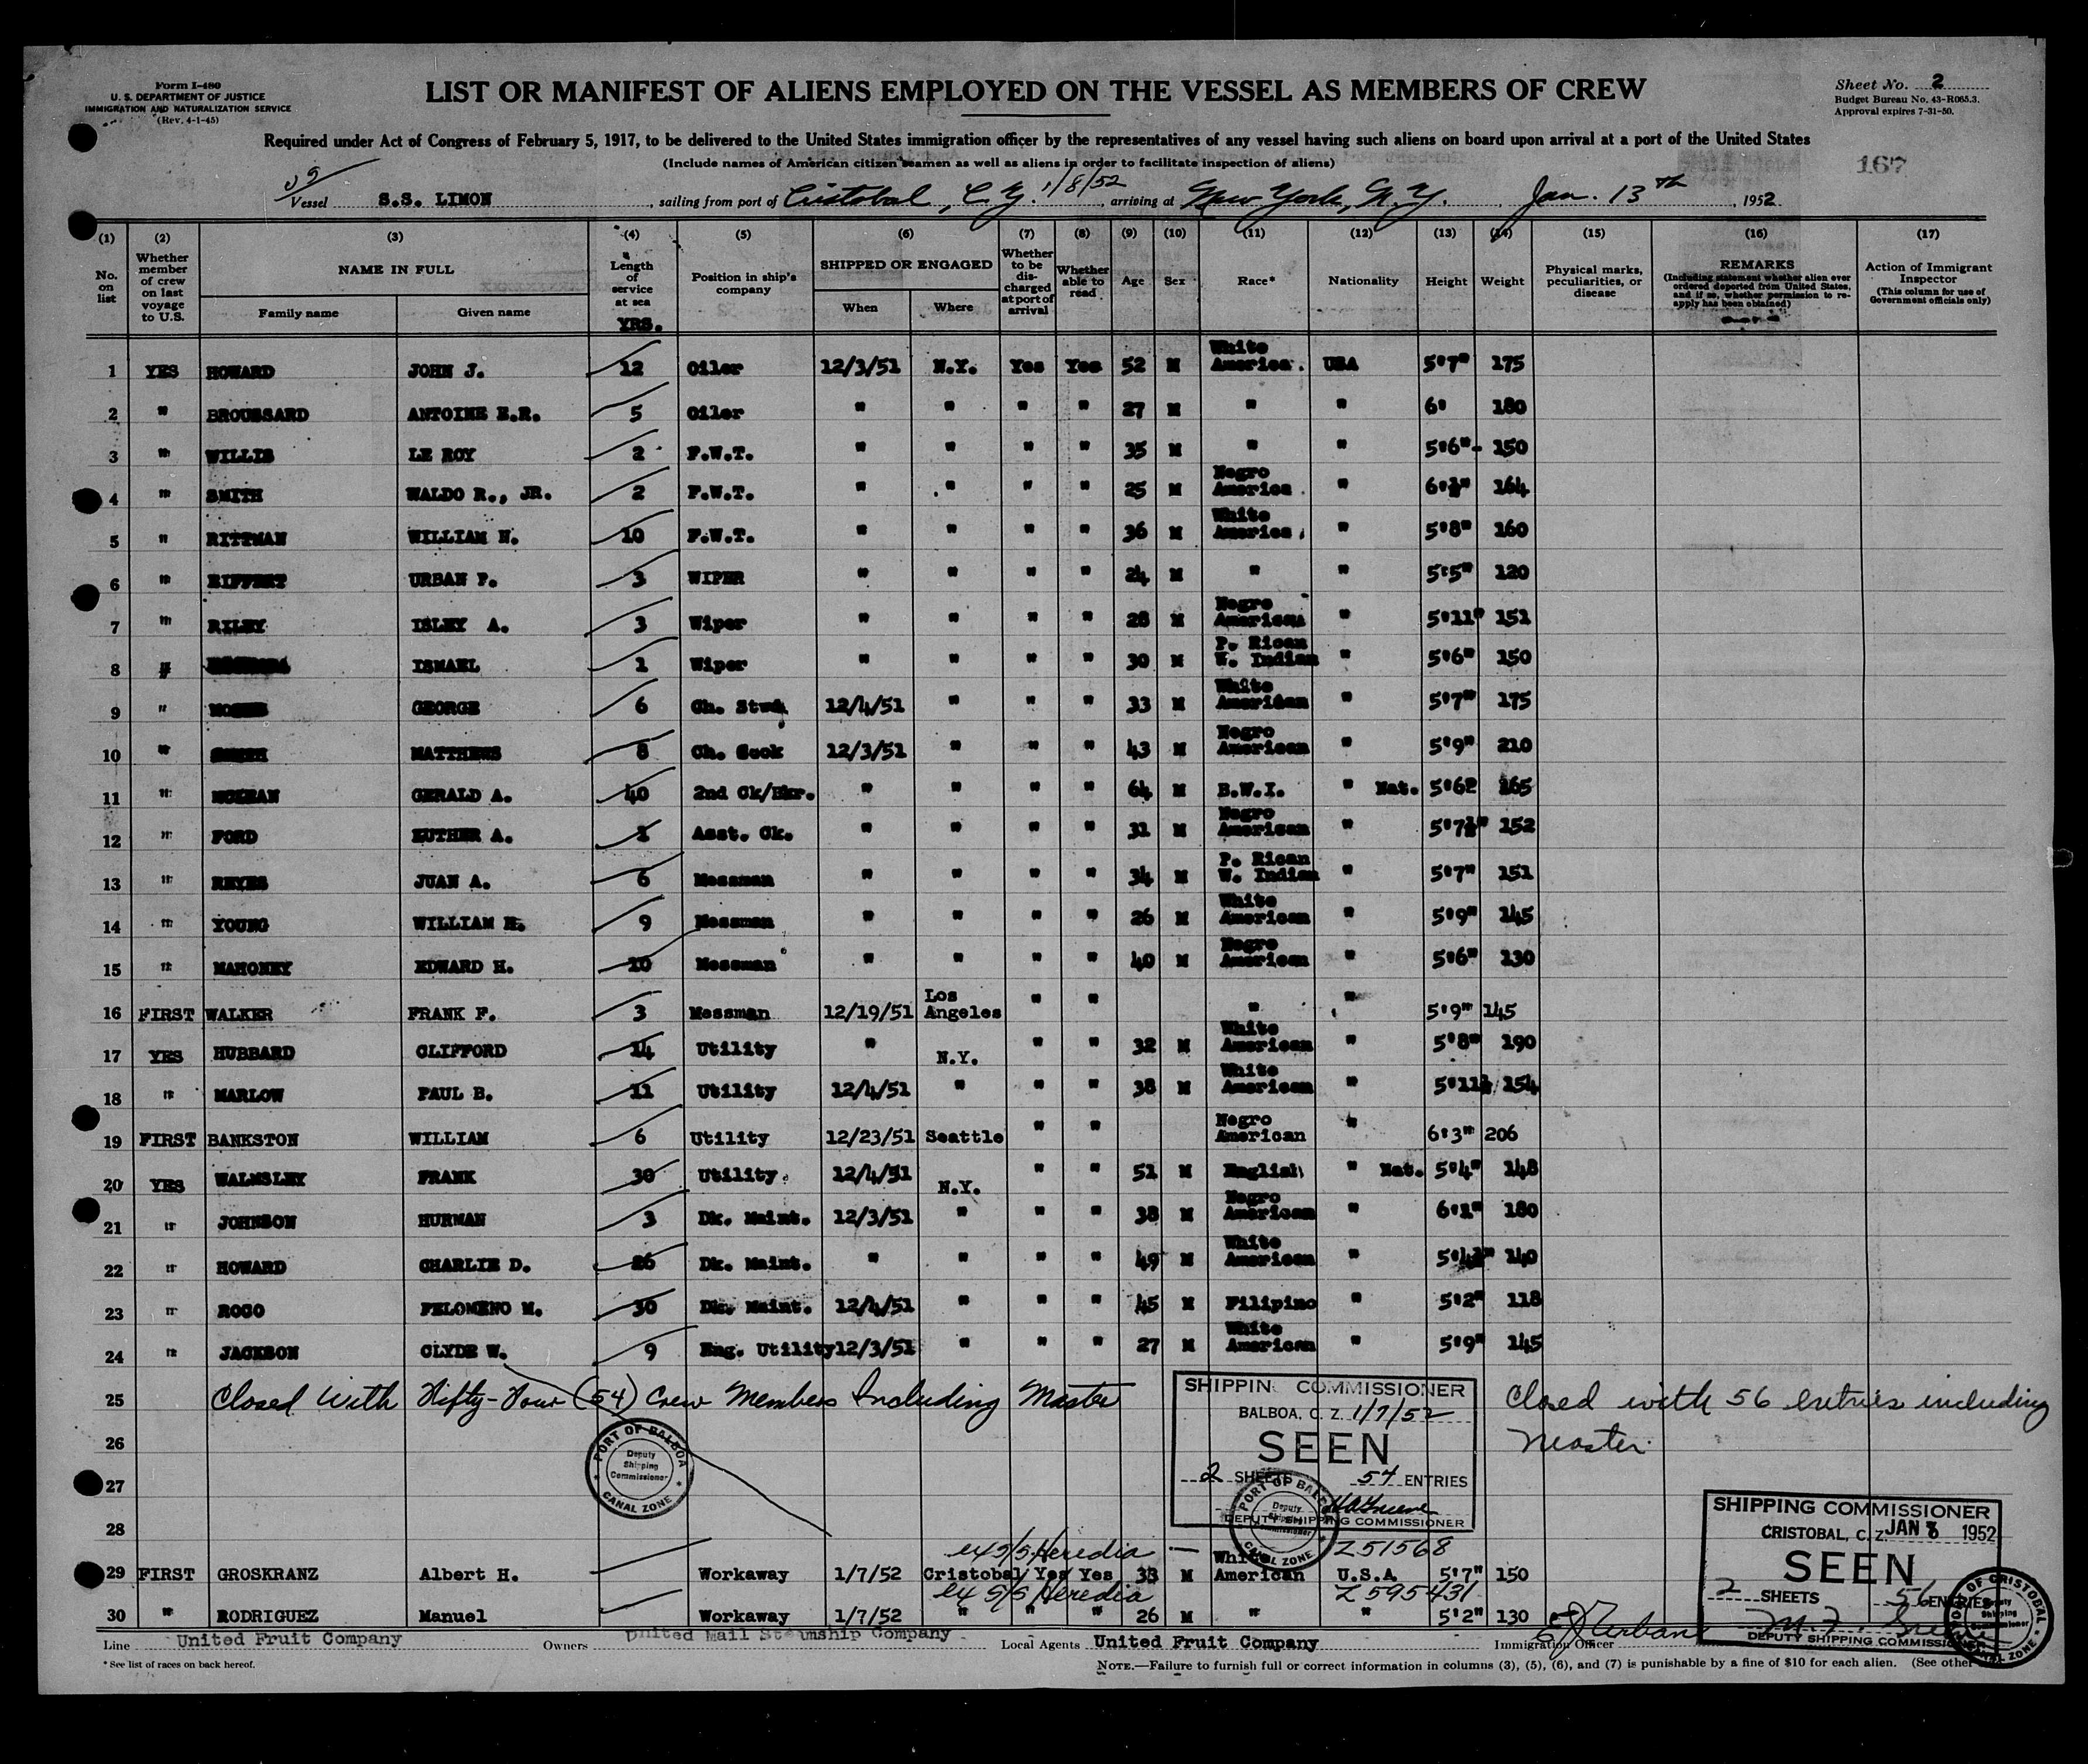 Form I-480
U. S. DEPARTMENT OF JUSTICE
IMMIGRATION AND NATURALIZATION SERVICE
(Rev. 4-1-45)
LIST OR MANIFEST OF ALIENS EMPLOYED ON THE VESSEL AS MEMBERS OF CREW
Sheet No. 2
Budget Bureau No. 43-R065.3.
Approval expires 7-31-50.
Required under Act of Congress of February 5, 1917, to be delivered to the United States immigration officer by the representatives of any vessel having such aliens on board upon arrival at a port of the United States
(Include names of American citizen seamen as well as aliens in order to facilitate inspection of aliens)
167
Vessel S.S. LIMON, sailing from port of Cristobal, C.Z. 1/8/52, arriving at New York, N.Y. Jan. 13th, 1952
(1) (2) (3) (4) (5) (6) (7) (8) (9) (10) (11) (12) (13) (14) (15) (16) (17)
No. on list
Whether member of crew on last voyage to U.S.
NAME IN FULL
Family name
Given name
Length of service at sea
YRS.
Position in ship's company
SHIPPED OR ENGAGED
When
Where
Whether to be discharged at port of arrival
Whether able to read
Age
Sex
Race*
Nationality
Height
Weight
Physical marks, peculiarities, or disease
REMARKS
(Including statement whether alien ever ordered deported from United States, and if so, whether permission to reapply has been obtained)
Action of Immigrant Inspector
(This column for use of Government officials only)
1 YES HOWARD JOHN J. 12 Oiler 12/3/51 N.Y. Yes Yes 52 M White America. USA 5'7" 175
2 " BROUSSARD ANTOINE E.R. 5 Oiler " " " " 27 M " " 6' 180
3 " WILLIS LE ROY 2 F.W.T. " " " " 35 M " " 5'6" 150
4 " SMITH WALDO R., JR. 2 F.W.T. " " " " 25 M Negro America " 6'½" 164
5 " RITTMAN WILLIAM H. 10 F.W.T. " " " " 36 M White America " 5'8" 160
6 " RIFFERT URBAN F. 3 WIPER " " " " 24 M " " 5'5" 120
7 " RILEY ISLEY A. 3 Wiper " " " " 28 M Negro American " 5'11" 151
8 " ISMAEL 1 Wiper " " " " 30 M P. Rican W. Indian " 5'6" 150
9 " GEORGE 6 Ch. Stwd. 12/4/51 " " " 33 M White American " 5'7" 175
10 " MATTHEWS 8 Ch. Cook 12/3/51 " " " 43 M Negro American " 5'9" 210
11 " MCLEAN GERALD A. 40 2nd Ck/Bkr. " " " " 64 M B.W.I. " Nat. 5'6" 165
12 " FORD LUTHER A. 1 Asst. Ck. " " " " 31 M Negro American " 5'7½" 152
13 " REYES JUAN A. 6 Messman " " " " 34 M P. Rican W. Indian " 5'7" 151
14 " YOUNG WILLIAM H. 9 Messman " " " " 26 M White American " 5'9" 145
15 " MAHONEY EDWARD H. 10 Messman " " " " 40 M Negro American " 5'6" 130
16 FIRST WALKER FRANK F. 3 Messman 12/19/51 Los Angeles " " " " 5'9" 145
17 YES HUBBARD CLIFFORD 14 Utility " N.Y. " " 32 M White American " 5'8" 190
18 " MARLOW PAUL B. 11 Utility 12/4/51 " " " 38 M White American " 5'11½ 154
19 FIRST BANKSTON WILLIAM 6 Utility 12/23/51 Seattle " " Negro American " 6'3" 206
20 YES WALMSLEY FRANK 30 Utility 12/4/51 N.Y. " " 51 M English " Nat. 5'4" 148
21 " JOHNSON HURMAN 3 Dk. Maint. 12/3/51 " " " 38 M Negro American " 6'1" 180
22 " HOWARD CHARLIE D. 26 Dk. Maint. " " " " 49 M White American " 5'4½" 140
23 " ROGO FELOMENO M. 30 Dk. Maint. 12/4/51 " " " 45 M Filipino " 5'2" 118
24 " JACKSON CLYDE W. 9 Eng. Utility 12/3/51 " " " 27 M White American " 5'9" 145
25 Closed With Fifty-Four (54) Crew Members Including Master
Closed with 56 entries including Master
26
27
28
SHIPPING COMMISSIONER
BALBOA, C. Z. 1/7/52
SEEN
2 SHEETS 54 ENTRIES
DEPUTY SHIPPING COMMISSIONER
PORT OF BALBOA
Deputy Shipping Commissioner
CANAL ZONE
PORT OF BALBOA
Deputy Shipping Commissioner
CANAL ZONE
SHIPPING COMMISSIONER
CRISTOBAL, C. Z. JAN 8 1952
SEEN
2 SHEETS 56 ENTRIES
DEPUTY SHIPPING COMMISSIONER
PORT OF CRISTOBAL
Deputy Shipping Commissioner
CANAL ZONE
ex S/S Heredia Z51568
29 FIRST GROSKRANZ Albert H. Workaway 1/7/52 Cristobal Yes Yes 33 M White American U.S.A. 5'7" 150
ex S/S Heredia Z595431
30 " RODRIGUEZ Manuel Workaway 1/7/52 " " " 26 M " " 5'2" 130
Line United Fruit Company Owners United Mail Steamship Company Local Agents United Fruit Company Immigration Officer
* See list of races on back hereof.
NOTE.—Failure to furnish full or correct information in columns (3), (5), (6), and (7) is punishable by a fine of $10 for each alien. (See other